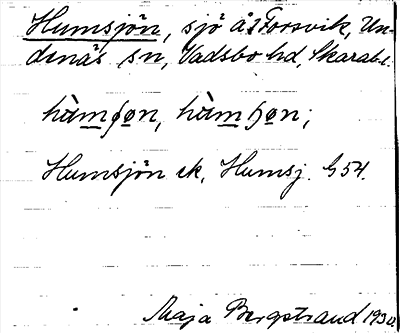 Humsjön, sjö å Forsvik, Un-
denäs sn, Vadsbo hd, Skarab.l.
hùmʃon, hùmꜧon;
Humsjön ek, Humsj. G54.
Maja Bergstrand 1930